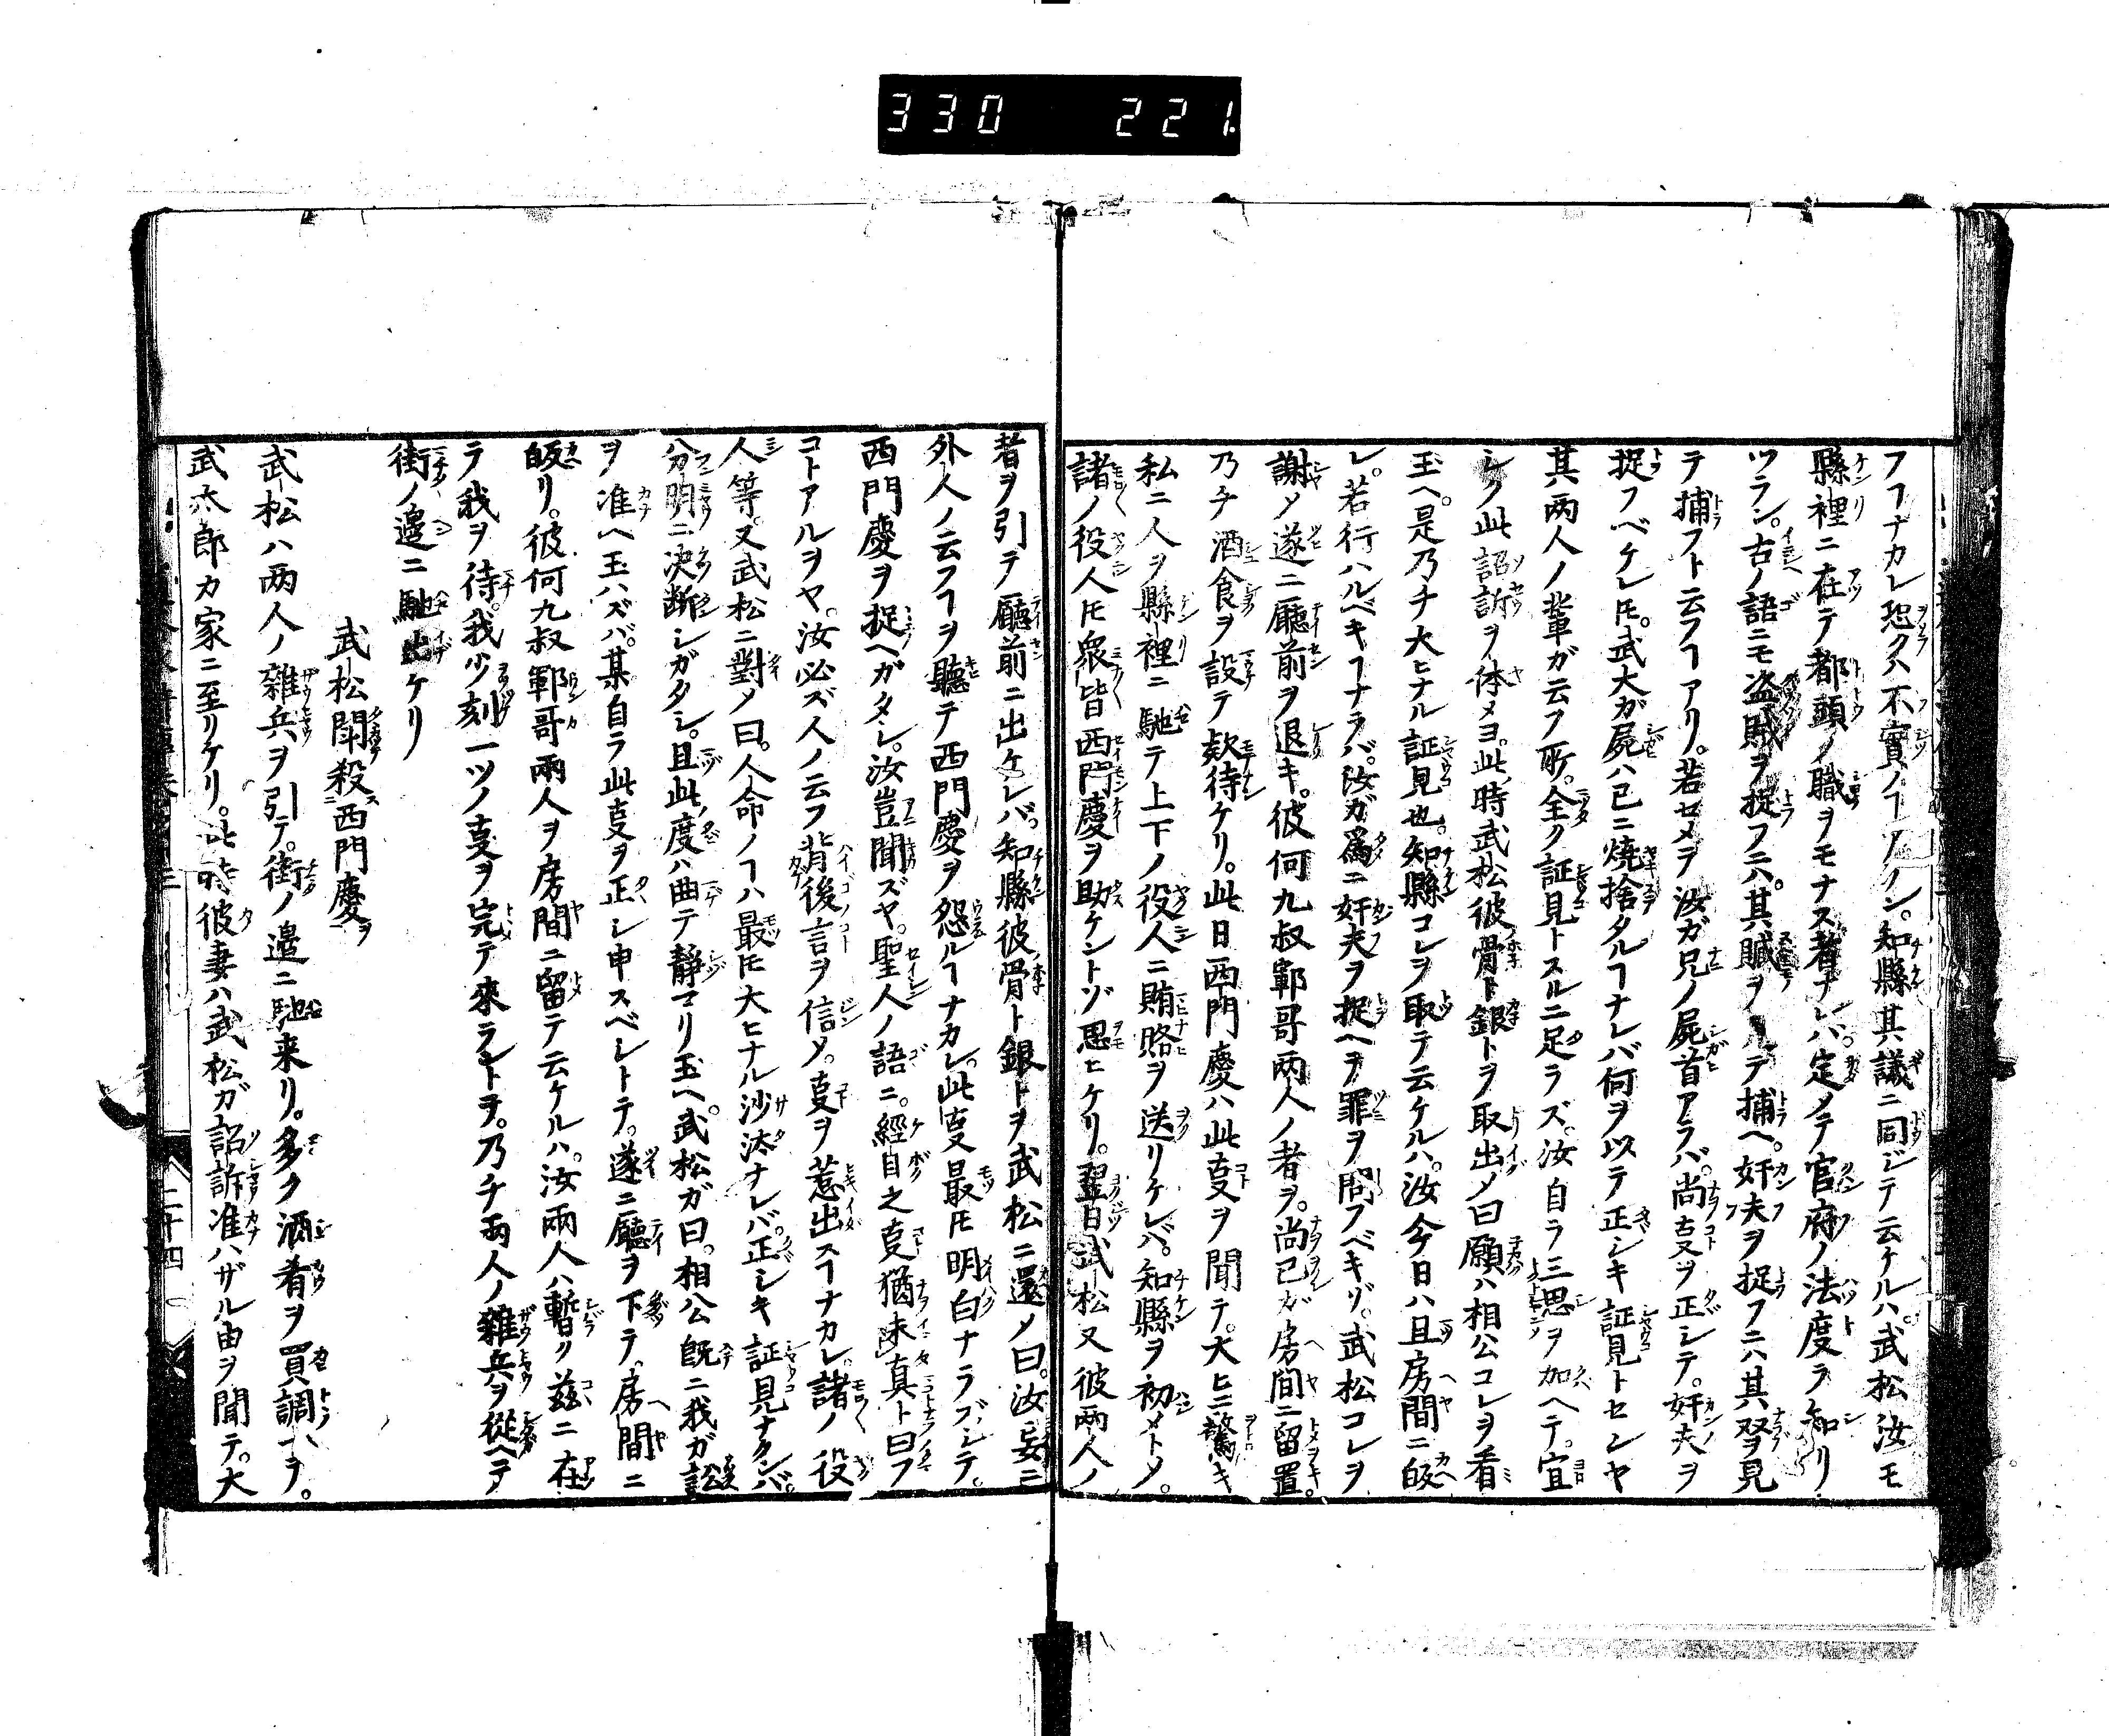 330 221
フヿナカレ恐クハ不實ノヿアン。知縣其議ニ同ジテ云ケルハ武松汝モ
縣裡ニ在テ都頭ノ職ヲモナス者ナレバ。定メテ官府ノ法度ヲ知リ
ツラン。古ノ語ニモ盗賊ヲ捉フニハ。其贓ヲ見テ捕ヘ。奸夫ヲ捉フニハ其雙ヲ見
テ捕フト云フヿアリ。若セメヲ汝ガ兄ノ屍首アラバ。尚叓ヲ正シテ。奸夫ヲ
捉フベケレ𪜈。武大ガ屍ハ已ニ燒捨タルヿナレバ何ヲ以テ正シキ証見トセンヤ
其両人ノ輩ガ云フ所。全ク証見トスルニ足ラズ。汝自ラ三思ヲ加ヘテ。宜
シク此詔訴ヲ休メヨ。此時武松彼骨ト銀トヲ取出メ曰願ハ相公コレヲ看
玉ヘ。是乃チ大ヒナル証見也。知縣コレヲ取テ云ケルハ。汝今日ハ且房間ニ皈
レ。若行ハルベキヿナラバ。汝ガ爲ニ奸夫ヲ捉ヘヲ罪ヲ問フベキゾ。武松コレヲ
謝メ遂ニ廳前ヲ退キ。彼何九叔鄆哥両人ノ者ヲ。尚己ガ房间ニ留置。
乃チ酒食ヲ設テ欵待ケリ。此日西門慶ハ此叓ヲ聞テ。大ヒニ驚キ
私ニ人ヲ縣裡ニ馳テ上下ノ役人ニ賄賂ヲ送リケレバ。知縣ヲ初メトメ。
諸ノ役人𪜈衆皆西門慶ヲ助ケントゾ思ヒケリ。翌日武松又彼両人ノ
者ヲ引テ廳前ニ出ケレバ。知縣彼骨ト銀トヲ武松ニ還メ曰。汝妄ニ
外人ノ云フヿヲ聽テ西門慶ヲ怨ルヿナカレ。此叓最𪜈明白ナラズシテ。
西門慶ヲ捉ヘガタシ。汝豈聞ズヤ。聖人ノ語ニ。經自之叓猶未真ト曰フ
コトアルヲヤ。汝必ズ人ノ云フ背後言ヲ信メ。叓ヲ惹出スヿナカレ。諸ノ役
人等。又武松ニ對メ曰。人命ノヿハ最𪜈大ヒナル沙汰ナレバ。正シキ証見ナクンバ。
分明ニ决断シガタシ。且此度ハ曲テ静マリ玉ヘ。武松ガ曰。相公既ニ我ガ訟
ヲ准ヘ玉ハズバ。某自ラ此叓ヲ正シ申スベシトテ。遂ニ廳ヲ下テ。房間ニ
皈リ。彼何九叔鄆哥兩人ヲ房間ニ留テ云ケルハ。汝兩人ハ暫ク茲ニ在
テ我ヲ待。我少刻一ツノ叓ヲ完テ來ラントテ。乃チ両人ノ雜兵ヲ從ヘテ
街ノ邊ニ馳出ケリ
武松鬪殺西門慶ヲ
武松ハ两人ノ雜兵ヲ引テ。街ノ邉ニ馳来リ。多ク酒肴ヲ買調ヘヲ。
武太郎カ家ニ至リケリ。此時彼妻ハ武松ガ詔訴准ハザル由ヲ聞テ。大
二十四